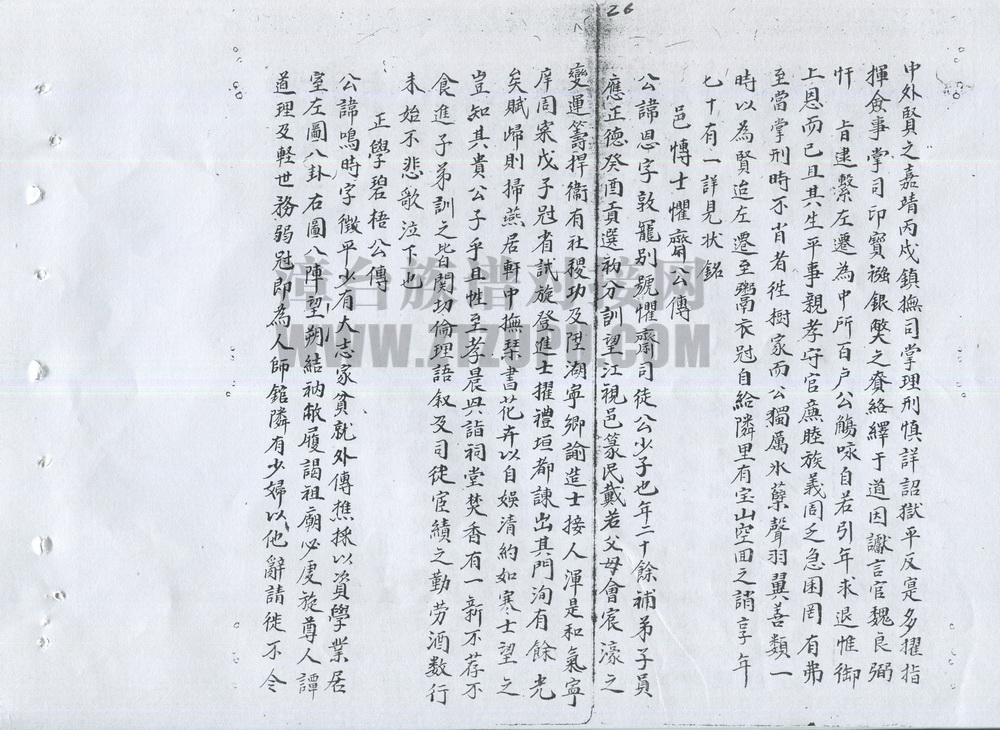 26
中外賢之嘉靖丙戌鎮撫司掌理刑慎詳詔獄平反寔多擢指
揮僉事掌司印寶襁銀獎之賚絡繹于道因讞言官魏良弼
忤 旨逮繫左遷為中所百户公觴咏自若引年求退惟御
上恩而已且其生平事親孝守官廉睦族義周乏急困罔有弗
至當掌刑時不肖者徃樹家而公獨厲氷蘗聲羽翼善類一
時以為賢迨左遷至鬻衣冠自給隣里有宝山空囬之誚享年
七十有一詳見狀銘
邑愽士懼齋公傳
公諱恩字敦寵别號懼齋司徒公少子也年二十餘補弟子員
應正德癸酉貢選初分訓望江視邑篆民戴若父母會宸濠之
變運籌捍衞有社稷功及陞湖寧鄉諭造士接人渾是和氣寧
庠周寀戊子冠省試旋登進士擢禮垣都諫出其門洵有餘光
矣賦歸則掃燕居軒中撫琹書花卉以自娛清約如寒士望之
豈知其貴公子乎且性至孝晨興詣祠堂焚香有一新不荐不
食進子弟訓之皆関切倫理語叙及司徒宦績之勤劳酒数行
未始不悲歌泣下也
正學碧梧公傳
公諱鳴時字徵平少有大志家貧就外傳樵採以資學業居
室左圖八卦右圖八陣望朔結衲敝履謁祖廟必虔旋尊人譚
道理及軽世務弱冠即為人師舘隣有少婦以他辭請徙不令
漳台族谱对接网